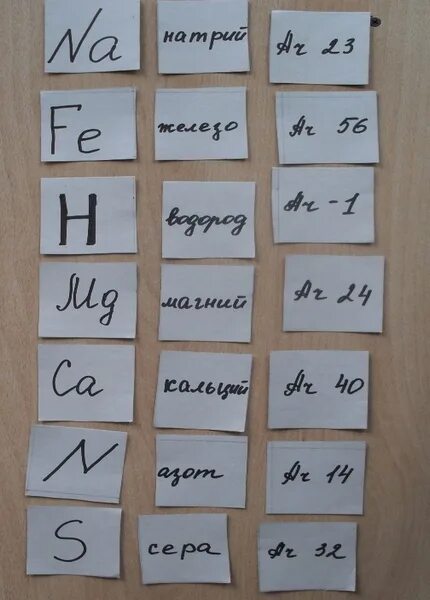 Na натрий Ar 23
Fe железо Ar 56
H водород Ar -1
Mg магний Ar 24
Ca кальций Ar 40
N азот Ar 14
S сера Ar 32